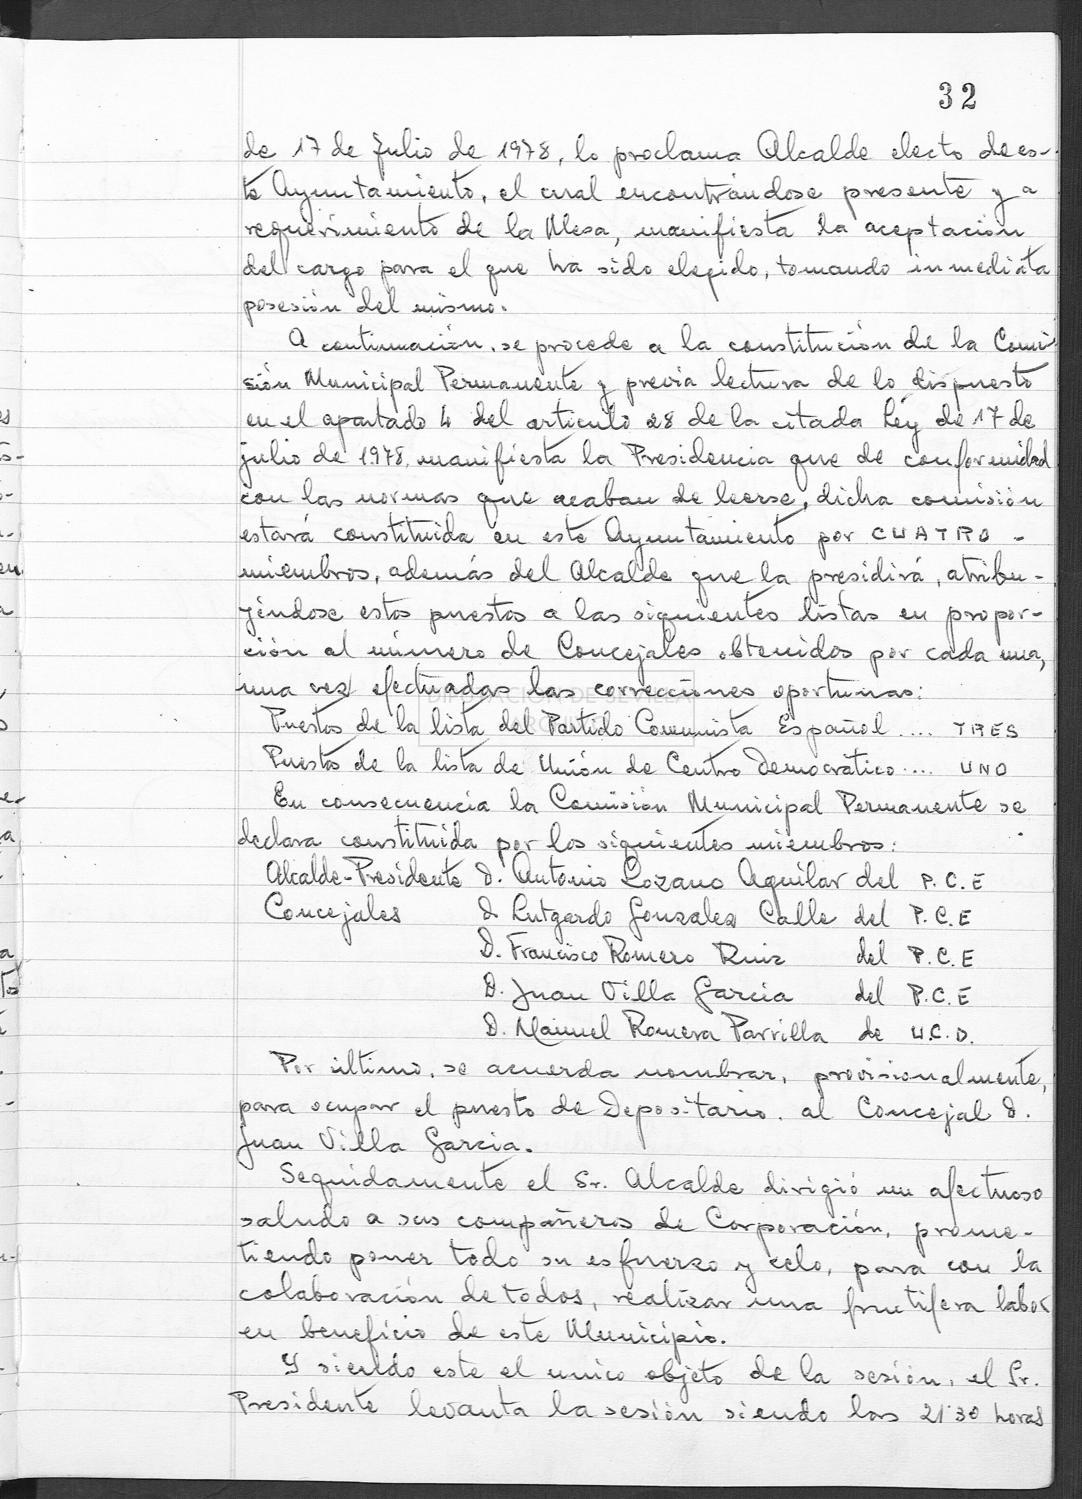 32
de 17 de Julio de 1978, lo proclama Alcalde electo de es-
te Ayuntamiento, el cual encontrándose presente y a
requerimiento de la Mesa, manifiesta la aceptación
del cargo para el que ha sido elegido, tomando inmediata
posesión del mismo.
A continuación, se procede a la constitución de la Comi-
sión Municipal Permanente y previa lectura de lo dispuesto
en el apartado 4 del articulo 28 de la citada Ley de 17 de
julio de 1978, manifiesta la Presidencia que de conformidad
con las normas que acaban de leerse, dicha comisión
estará constituida en este Ayuntamiento por CUATRO -
miembros, además del Alcalde que la presidirá, atribu-
yéndose estos puestos a las siguientes listas en propor-
ción al número de Concejales obtenidos por cada una,
una vez efectuadas las correcciones oportunas:
DIPUTACIÓN DE SEVILLA
Puestos de la lista del Partido Comunista Español .... TRES
Puestos de la lista de Unión de Centro Democrático .... UNO
En consecuencia la Comisión Municipal Permanente se
declara constituida por los siguientes miembros:
Alcalde-Presidente D. Antonio Lozano Aguilar del P.C.E
Concejales D. Lutgardo Gonzalez Calle del P.C.E
D. Francisco Romero Ruiz del P.C.E
D. Juan Villa Garcia del P.C.E
D. Manuel Romera Parrilla de U.C.D.
Por último, se acuerda nombrar, provisionalmente,
para ocupar el puesto de Depositario, al Concejal D.
Juan Villa Garcia.
Seguidamente el Sr. Alcalde dirigió un afectuoso
saludo a sus compañeros de Corporación, prome-
tiendo poner todo su esfuerzo y celo, para con la
colaboración de todos, realizar una fructifera labor
en beneficio de este Municipio.
Y siendo este el unico objeto de la sesión, el Sr.
Presidente levanta la sesión siendo las 21'30 horas